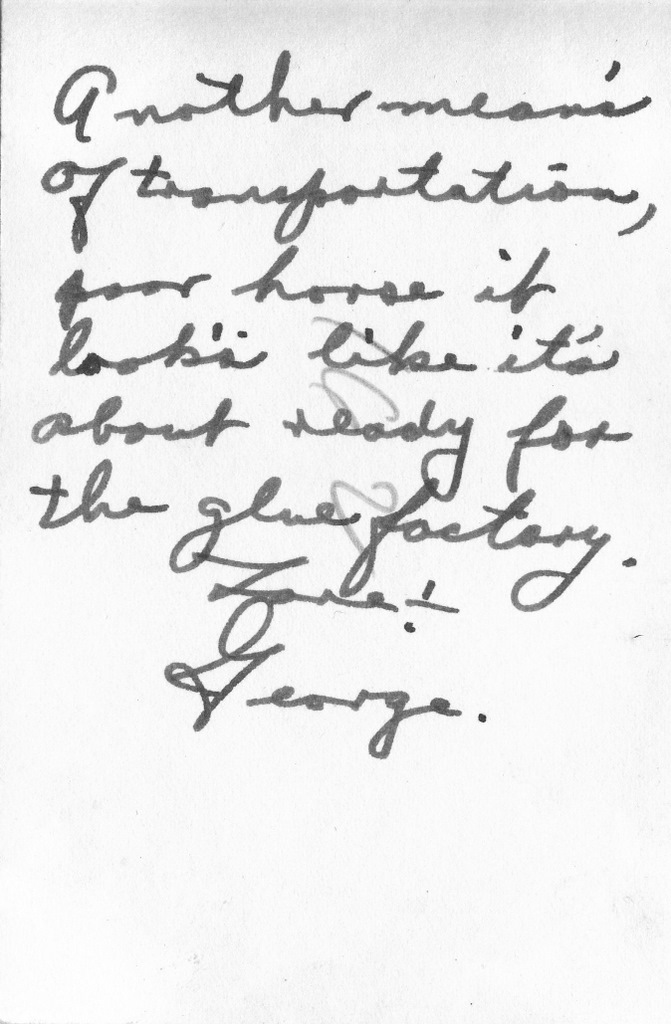 Another mean's
of transportation,
poor horse it
look's like it's
about ready for
the glue factory.
Love!
George.